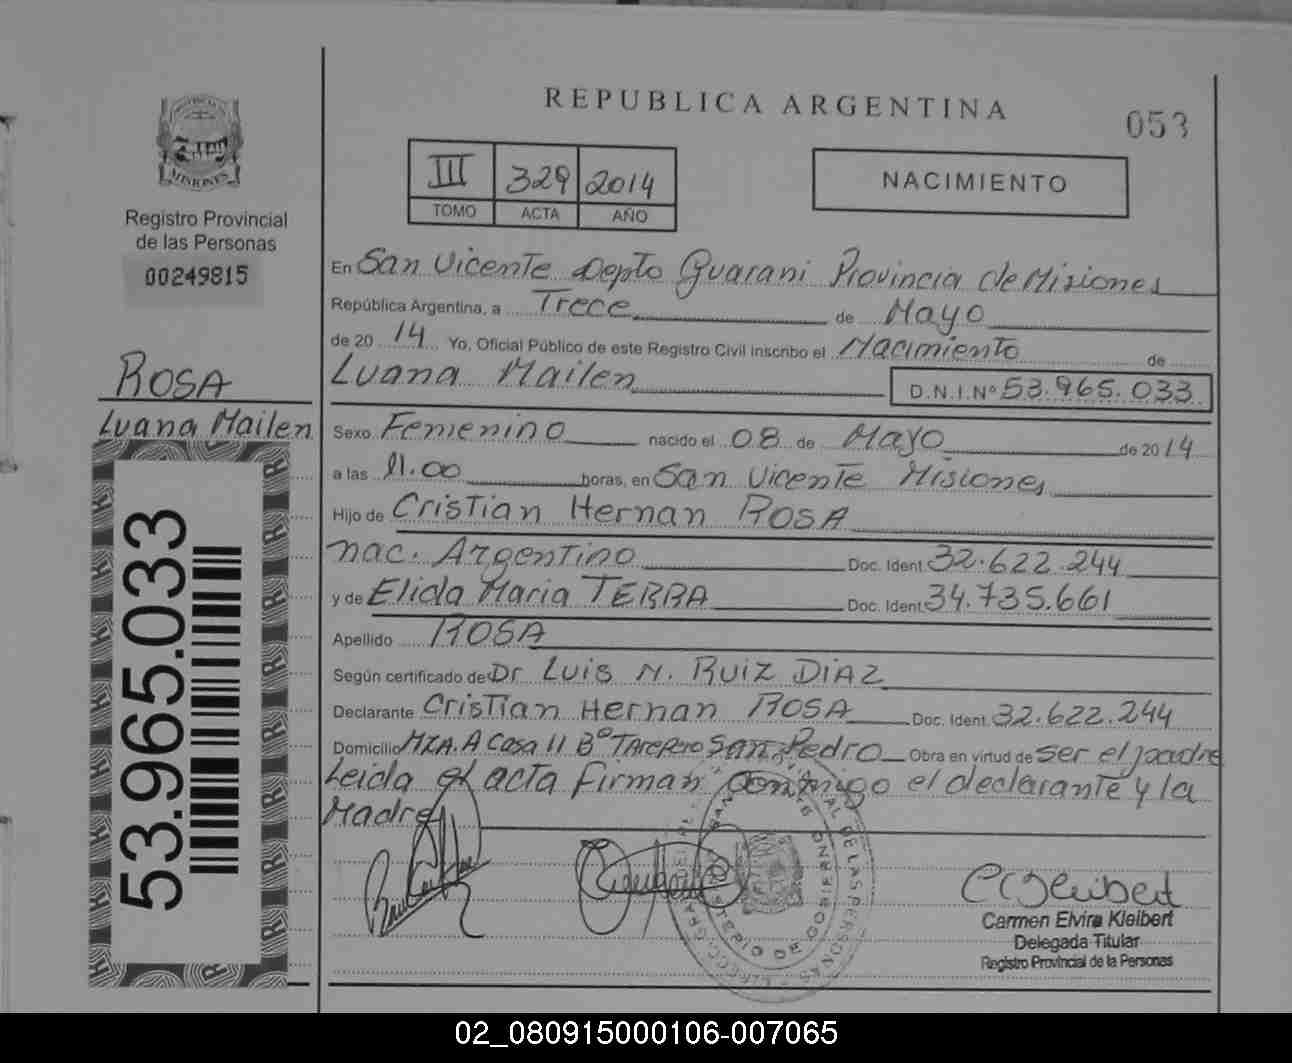 REPUBLICA ARGENTINA
053
III 329 2014
TOMO ACTA AÑO
NACIMIENTO
MISIONES
Registro Provincial
de las Personas
00249815
ROSA
Luana Mailen
53.965.033
En San Vicente Depto Guarani Provincia de Misiones
República Argentina, a Trece de Mayo
de 20 14 Yo, Oficial Público de este Registro Civil inscribo el Nacimiento de
Luana Mailen D.N.I.Nº 53.965.033
Sexo Femenino nacido el 08 de Mayo de 2014
a las 11.00 horas, en San Vicente Misiones
Hijo de Cristian Hernan ROSA
nac. Argentino Doc. Ident. 32.622.244
y de Elida Maria TERRA Doc. Ident. 34.735.661
Apellido ROSA
Según certificado de Dr Luis N. Ruiz Diaz
Declarante Cristian Hernan ROSA Doc. Ident. 32.622.244
Domicilio MZA. A Casa 11 Bº San Pedro Obra en virtud de ser el padre
Leida el acta firman conmigo el declarante y la
Madre
Carmen Elvira Kleibert
Delegada Titular
Registro Provincial de la Personas
02_080915000106-007065